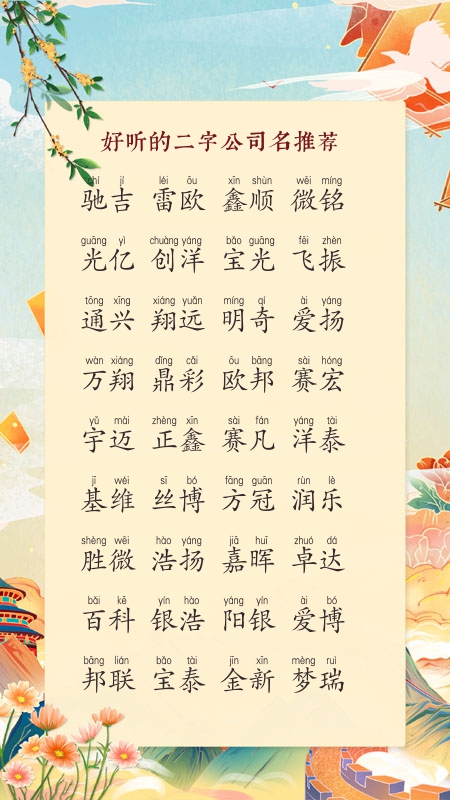 好听的二字公司名推荐
chí jí léi ōu xīn shùn wēi míng
驰吉 雷欧 鑫顺 微铭
guāng yì chuàng yáng bǎo guāng fēi zhèn
光亿 创洋 宝光 飞振
tōng xīng xiáng yuǎn míng qí ài yáng
通兴 翔远 明奇 爱扬
wàn xiáng dǐng cǎi ōu bāng sài hóng
万翔 鼎彩 欧邦 赛宏
yǔ mài zhèng xīn sài fán yáng tài
宇迈 正鑫 赛凡 洋泰
jī wéi sī bó fāng guān rùn lè
基维 丝博 方冠 润乐
shèng wēi hào yáng jiā huī zhuó dá
胜微 浩扬 嘉晖 卓达
bǎi kē yín hào yáng yín ài bó
百科 银浩 阳银 爱博
bāng lián bǎo tài jīn xīn mèng ruì
邦联 宝泰 金新 梦瑞